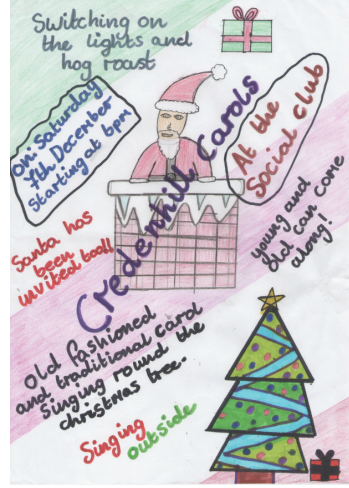 Switching on
the lights and
hog roast
on: Saturday
7th December
starting at 6pm
At the
Social club
Credenhill Carols
Santa has
been
invited too!!
young and
old can come
along!
Old fashioned
and traditional carol
singing round the
christmas tree.
Singing
outside